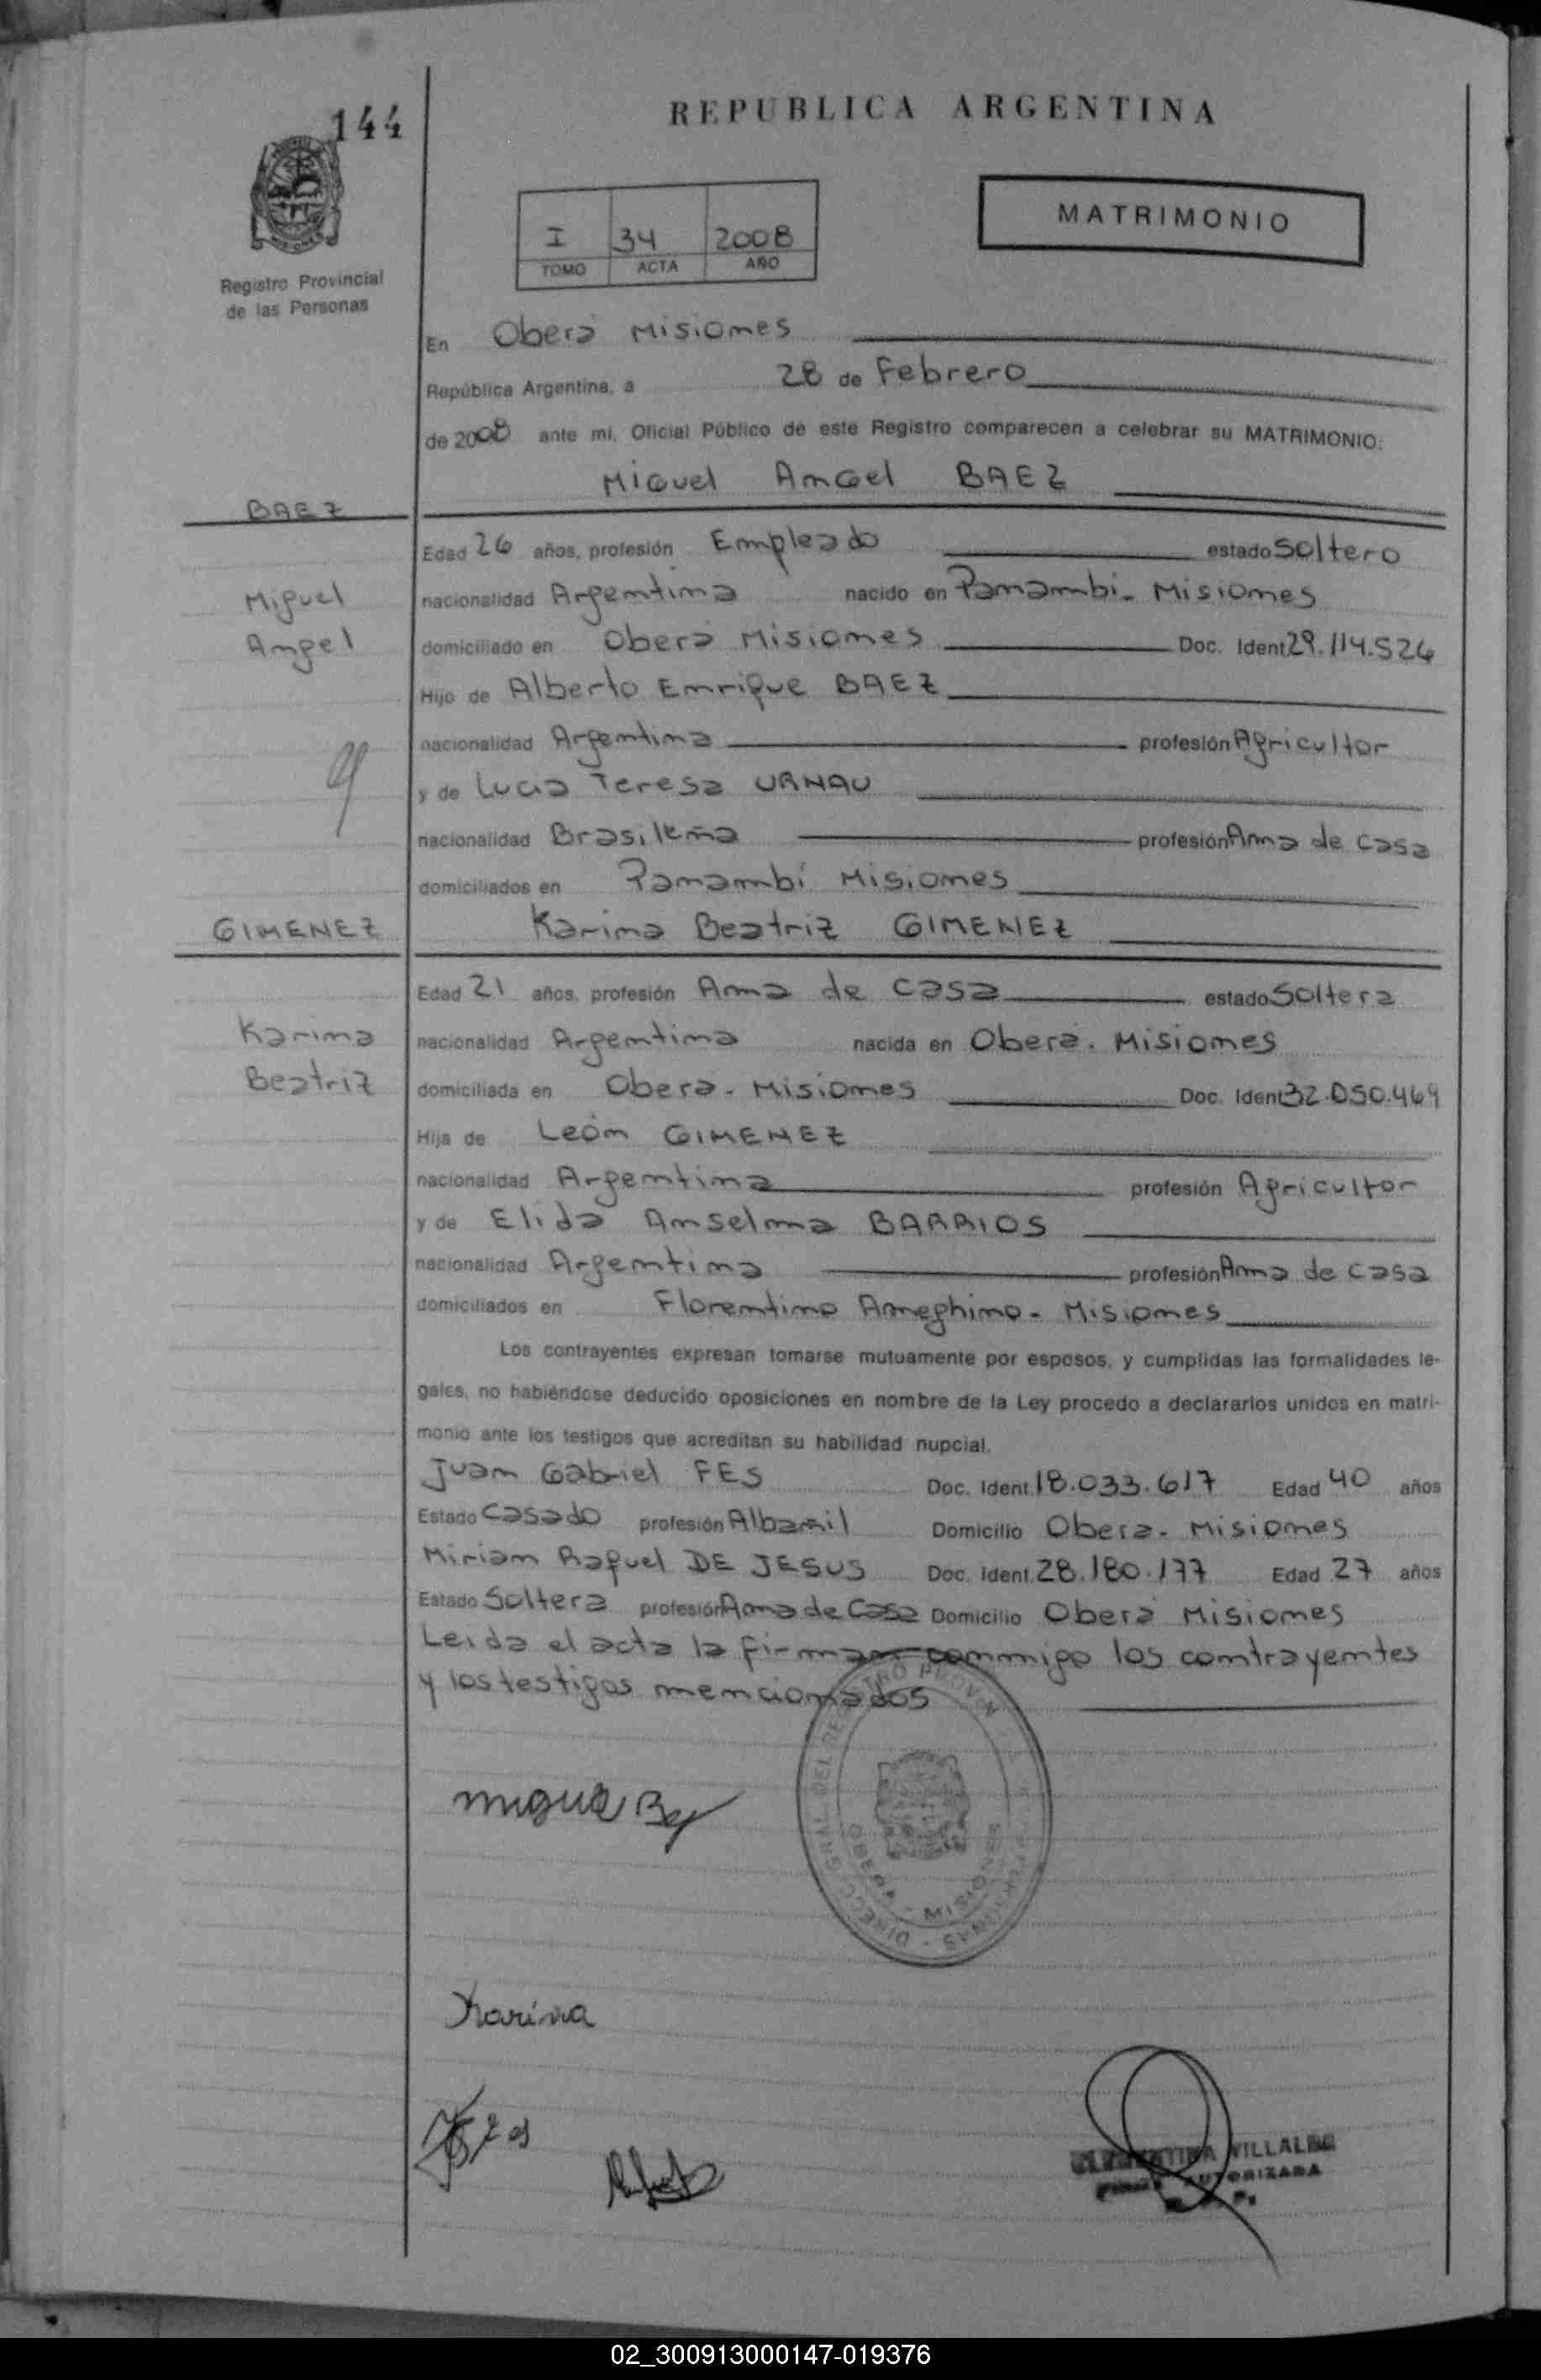 144
REPUBLICA ARGENTINA
I 34 2008
TOMO ACTA AÑO
MATRIMONIO
Registro Provincial
de las Personas
En Oberá Misiones
República Argentina, a 28 de Febrero
de 2008 ante mi, Oficial Público de este Registro comparecen a celebrar su MATRIMONIO:
Miguel Angel BAEZ
BAEZ
Edad 26 años, profesión Empleado estado Soltero
Miguel
nacionalidad Argentina nacido en Panambí - Misiones
Angel
domiciliado en Oberá Misiones Doc. Ident 29.114.526
Hijo de Alberto Enrique BAEZ
nacionalidad Argentina profesión Agricultor
y de Lucia Teresa URNAU
nacionalidad Brasileña profesión Ama de casa
domiciliados en Panambí Misiones
GIMENEZ
Karina Beatriz GIMENEZ
Edad 21 años, profesión Ama de casa estado Soltera
Karina
nacionalidad Argentina nacida en Oberá. Misiones
Beatriz
domiciliada en Oberá - Misiones Doc. Ident 32.050.469
Hija de León GIMENEZ
nacionalidad Argentina profesión Agricultor
y de Elida Anselma BARRIOS
nacionalidad Argentina profesión Ama de casa
domiciliados en Florentino Ameghino - Misiones
Los contrayentes expresan tomarse mutuamente por esposos, y cumplidas las formalidades le-
gales, no habiéndose deducido oposiciones en nombre de la Ley procedo a declararlos unidos en matri-
monio ante los testigos que acreditan su habilidad nupcial.
Juan Gabriel FES Doc. Ident. 18.033.617 Edad 40 años
Estado Casado profesión Albañil Domicilio Oberá - Misiones
Miriam Raquel DE JESUS Doc. Ident. 28.180.177 Edad 27 años
Estado Soltera profesión Ama de Casa Domicilio Oberá Misiones
Leida el acta la firman conmigo los contrayentes
y los testigos mencionados
DIRECC. GRAL. DEL REGISTRO PROVINCIAL PERSONAS
OBERA - MISIONES
Miguel
Karina
VILLALBA
AUTORIZADA
02_300913000147-019376